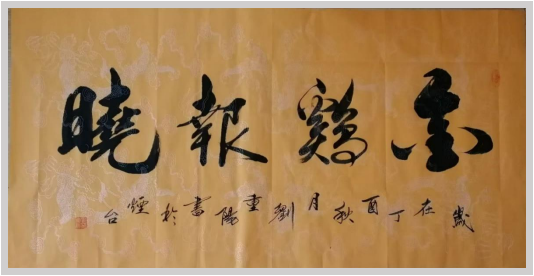 金鷄報曉
歲在丁酉秋月劉重陽書於煙台